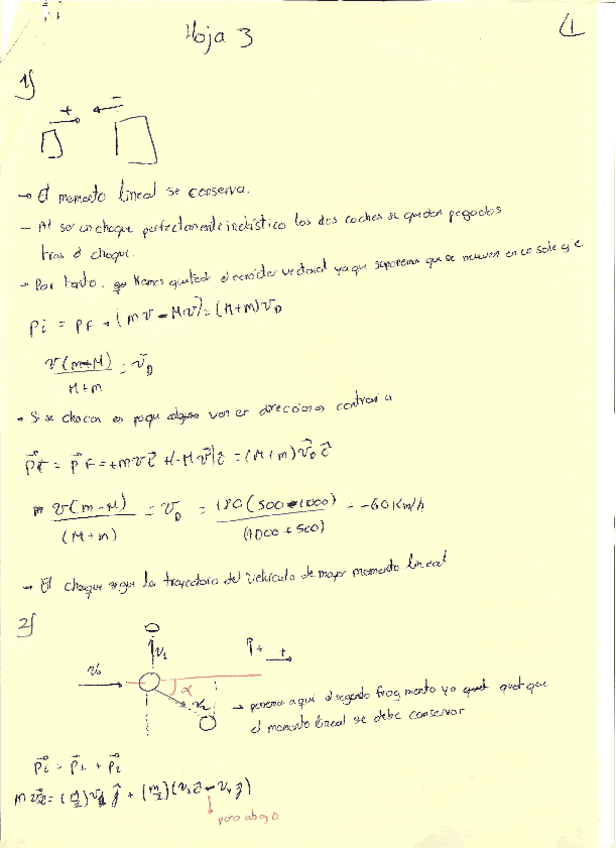 Hoja 3
1
1)
+
−
→ El momento lineal se conserva.
– Al ser un choque perfectamente inelástico los dos coches se quedan pegados
tras el choque.
→ Por tanto. vamos quitar el carácter vectorial ya que suponemos que se mueven en un solo eje
Pi = PF → (mv − Mv) = (M+m)v_D
v(m−M) / M+m = v_D
→ Si se chocan es porque van en direcciones contraria
P⃗i = P⃗F = +mv î + (−Mv) î = (M+m) v⃗_D î
v(m−M) / (M+m) = v_D = 180(500−1000) / (1000+500) = −60 Km/h
→ El choque sigue la trayectoria del vehículo de mayor momento lineal
2)
v₁
↑+ +
v₀
α
v₂
→ ponemos aquí el segundo fragmento ya que
el momento lineal se debe conservar
P⃗i = P⃗1 + P⃗2
m v î = (m/2) v₁ ĵ + (m/2)(vₓ î − v_y ĵ)
para abajo